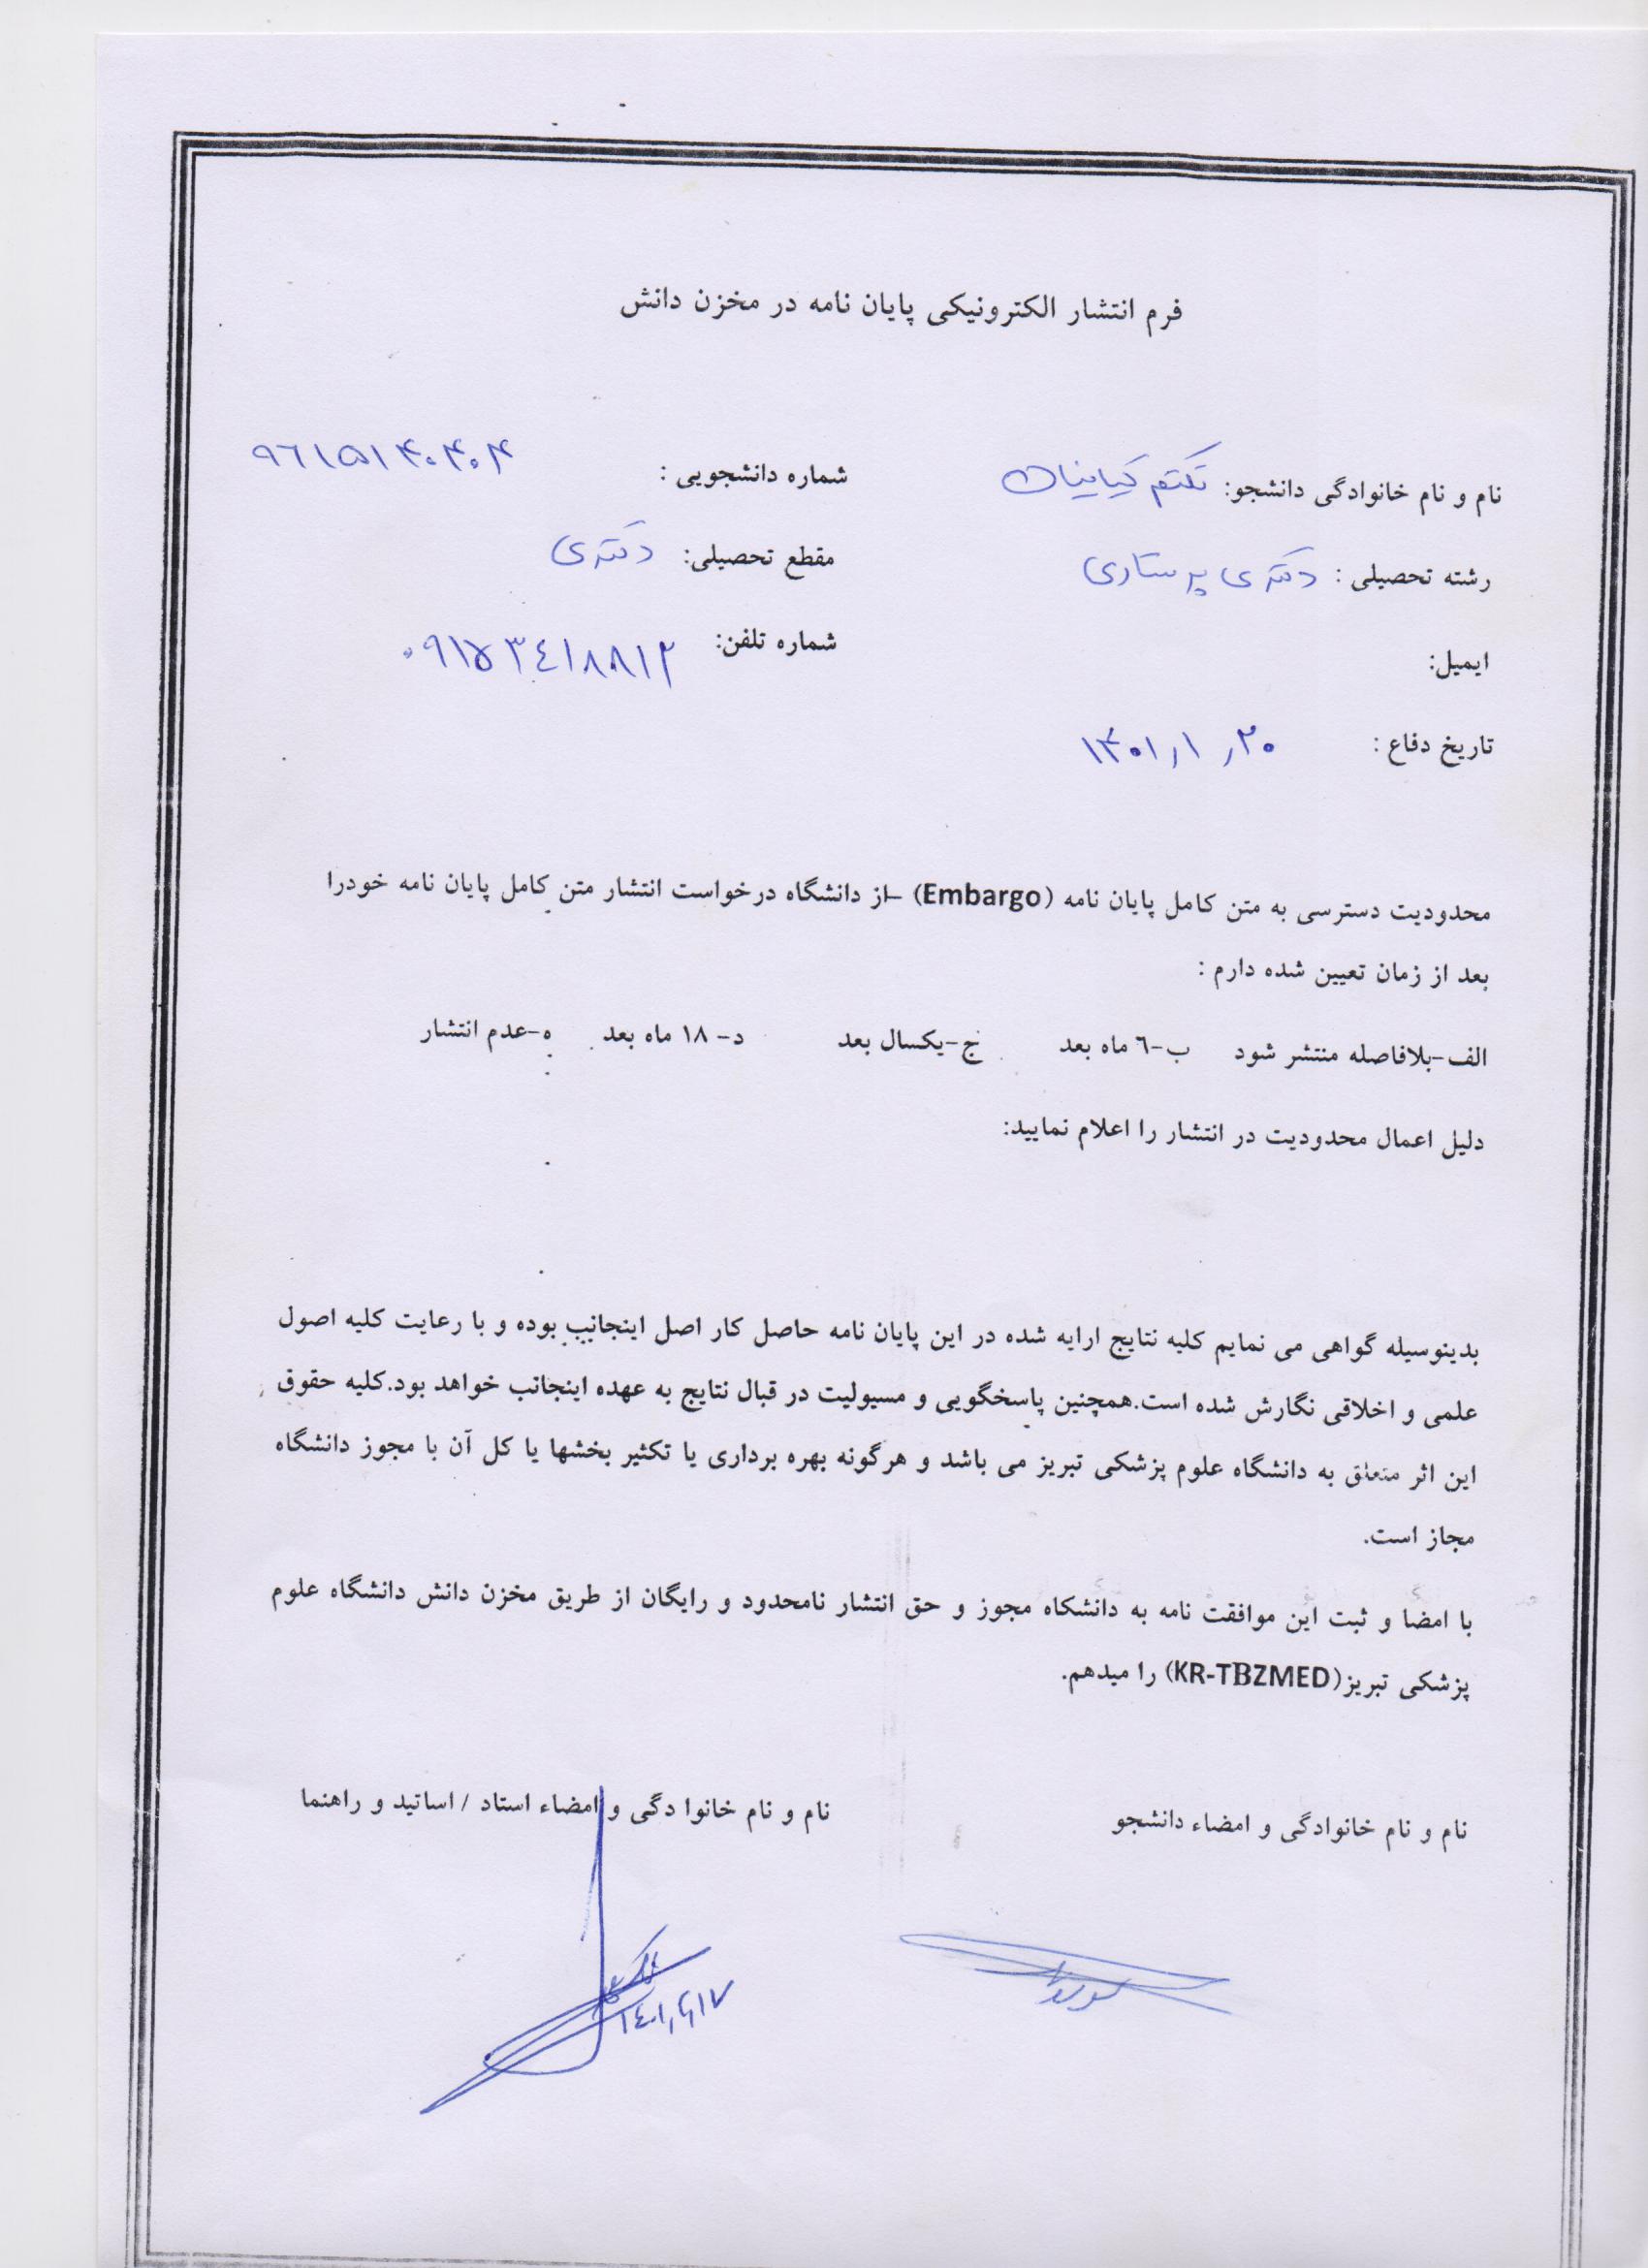 فرم انتشار الکترونیکی پایان نامه در مخزن دانش
نام و نام خانوادگی دانشجو: تکتم کیانیان شماره دانشجویی : ۹۶۱۵۱۴۰۴۰۴
رشته تحصیلی : دکتری پرستاری مقطع تحصیلی: دکتری
ایمیل: شماره تلفن: ۰۹۱۵۳۴۱۸۸۱۲
تاریخ دفاع : ۱۴۰۱٫۱٫۲۰
محدودیت دسترسی به متن کامل پایان نامه (Embargo) –از دانشگاه درخواست انتشار متن کامل پایان نامه خودرا
بعد از زمان تعیین شده دارم :
الف-بلافاصله منتشر شود ب-٦ ماه بعد ج-یکسال بعد د- ۱۸ ماه بعد ه-عدم انتشار
دلیل اعمال محدودیت در انتشار را اعلام نمایید:
بدینوسیله گواهی می نمایم کلیه نتایج ارایه شده در این پایان نامه حاصل کار اصل اینجانب بوده و با رعایت کلیه اصول
علمی و اخلاقی نگارش شده است.همچنین پاسخگویی و مسیولیت در قبال نتایج به عهده اینجانب خواهد بود.کلیه حقوق
این اثر متعلق به دانشگاه علوم پزشکی تبریز می باشد و هرگونه بهره برداری یا تکثیر بخشها یا کل آن با مجوز دانشگاه
مجاز است.
با امضا و ثبت این موافقت نامه به دانشکاه مجوز و حق انتشار نامحدود و رایگان از طریق مخزن دانش دانشگاه علوم
پزشکی تبریز(KR-TBZMED) را میدهم.
نام و نام خانوادگی و امضاء دانشجو نام و نام خانوا دگی و امضاء استاد / اساتید و راهنما